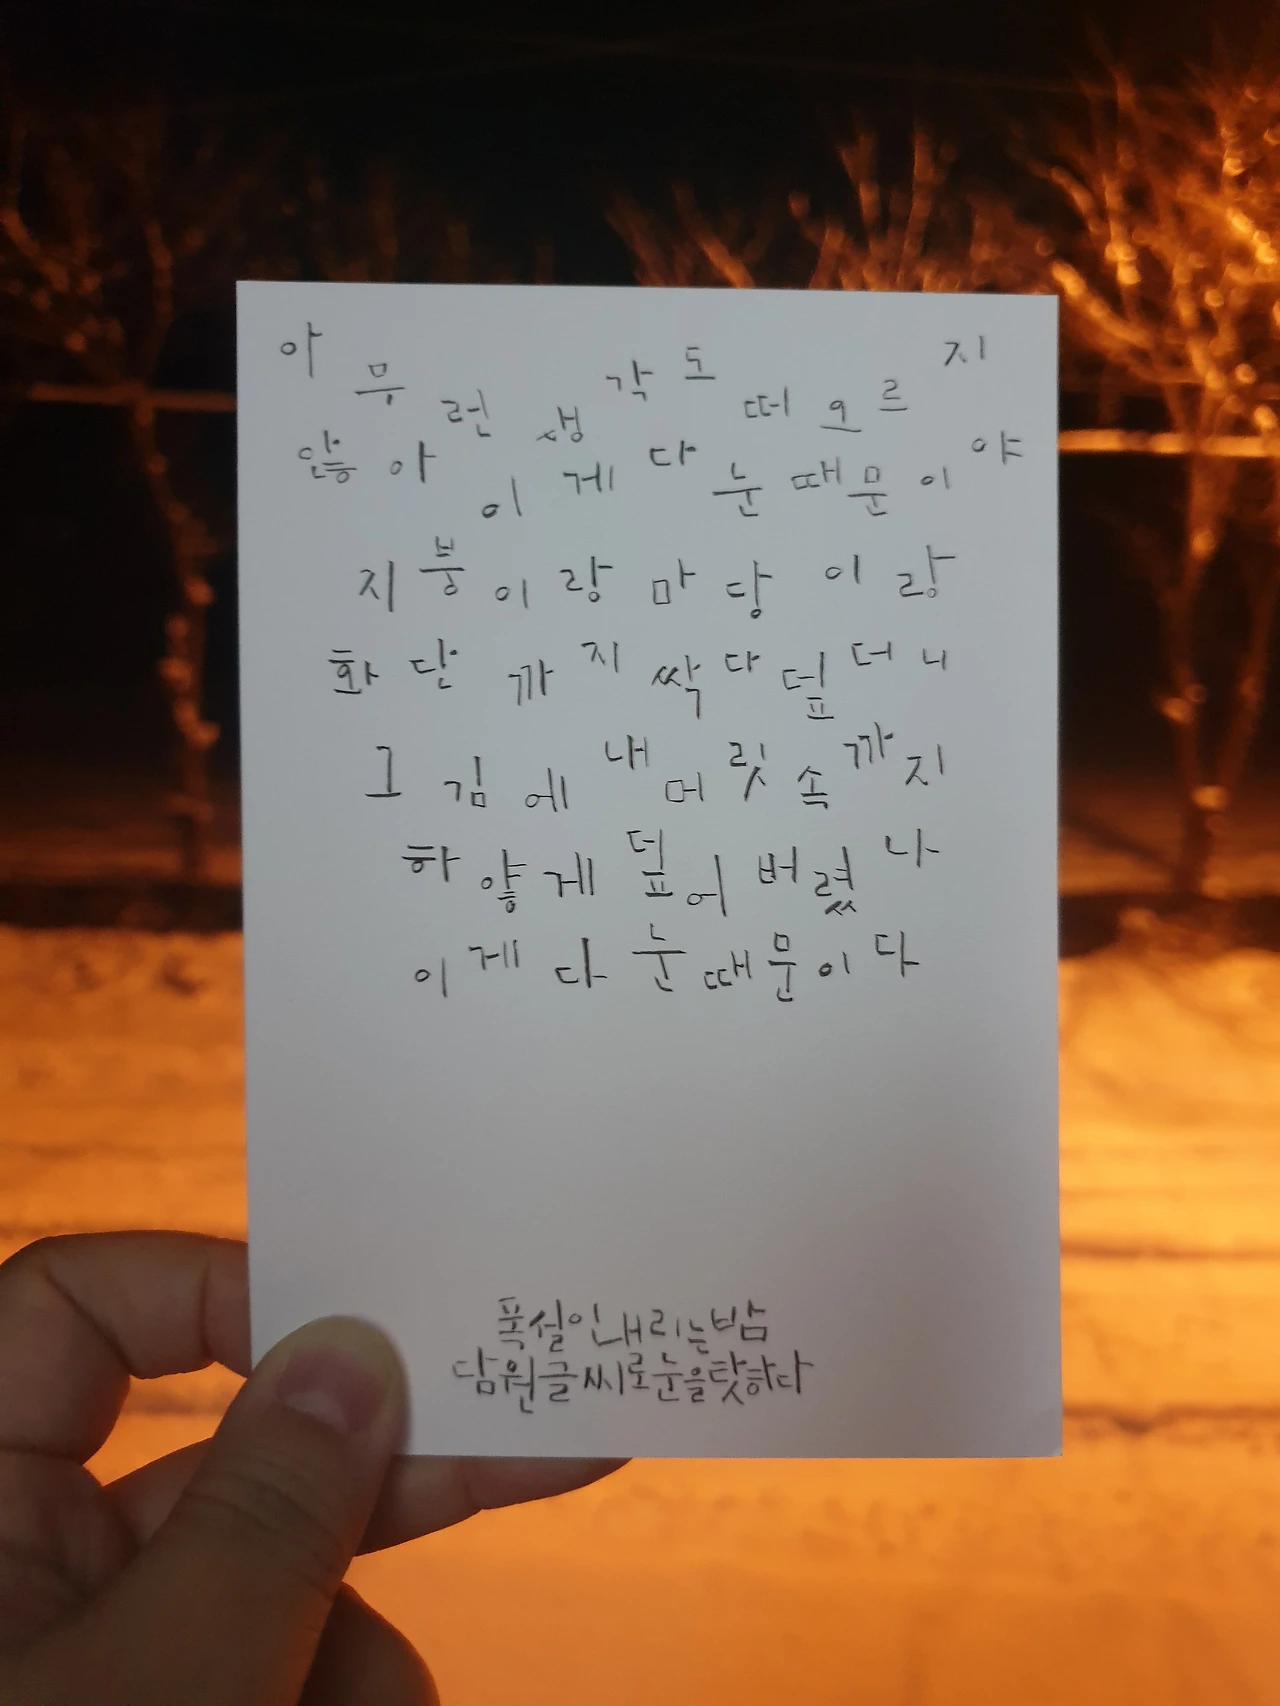 아무런 생각도 떠오르지
않아 이게 다 눈 때문이야
지붕이랑 마당이랑
화단까지 싹 다 덮더니
그김에 내 머릿속까지
하얗게 덮어버렸나
이게 다 눈 때문이다
폭설이 내리는 밤
담원 글씨로 눈을 탓하다